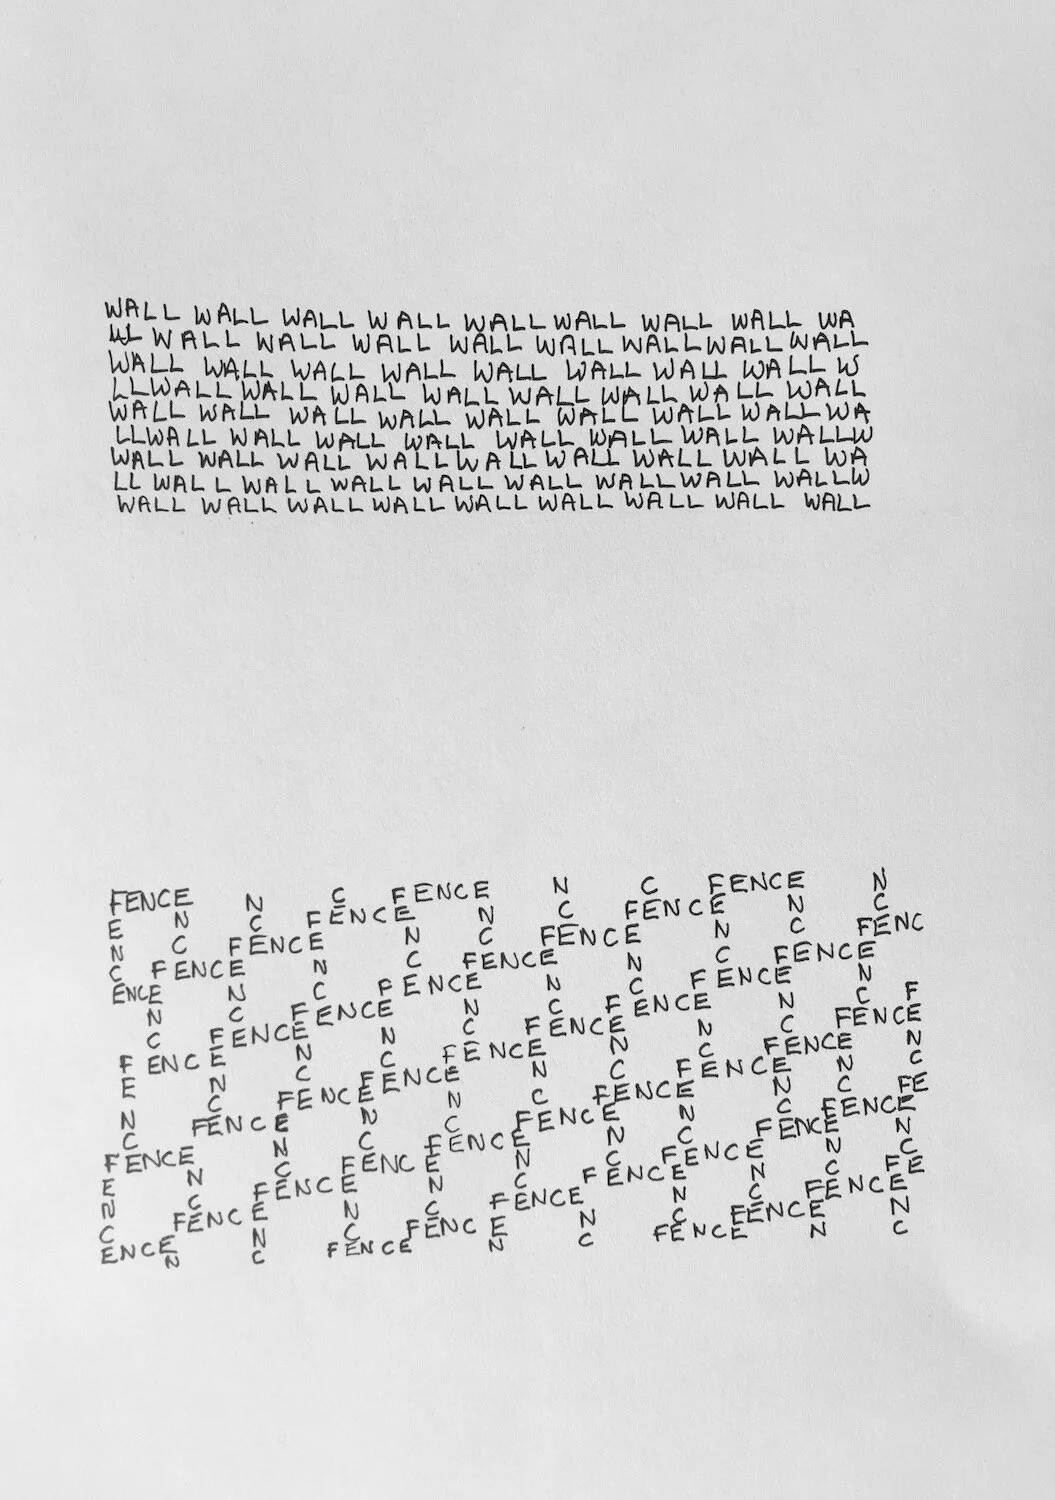 WALL WALL WALL WALL WALL WALL WALL WALL WA
LL WALL WALL WALL WALL WALL WALL WALL WALL
WALL WALL WALL WALL WALL WALL WALL WALL W
LLWALL WALL WALL WALL WALL WALL WALL WALL
WALL WALL WALL WALL WALL WALL WALL WALL WA
LLWALL WALL WALL WALL WALL WALL WALL WALLW
WALL WALL WALL WALL WALL WALL WALL WALL WA
LL WALL WALL WALL WALL WALL WALL WALL WALLW
WALL WALL WALL WALL WALL WALL WALL WALL WALL
FENCE N C FENCE N C FENCE N
E N C FENCE N C FENCE N C
N C FENCE N C FENCE N C FENC
C FENCE N C FENCE N C FENCE
ENCE N C FENCE N C FENCE N
N C FENCE N C FENCE N C F
C FENCE N C FENCE N C FENCE
FENCE N C FENCE N C FENCE N
E N C FENCE N C FENCE N C
N C FENCE N C FENCE N C FE
C FENCE N C FENCE N C FENCE
FENCE N C FENCE N C FENCE N
E N C FENCE N C FENCE N C
N C FENCE N C FENCE N C FE
C FENCE N C FENCE N C FENCE
ENCE N C FENCE N C FENCE N
N C FENCE N C FENCE N C